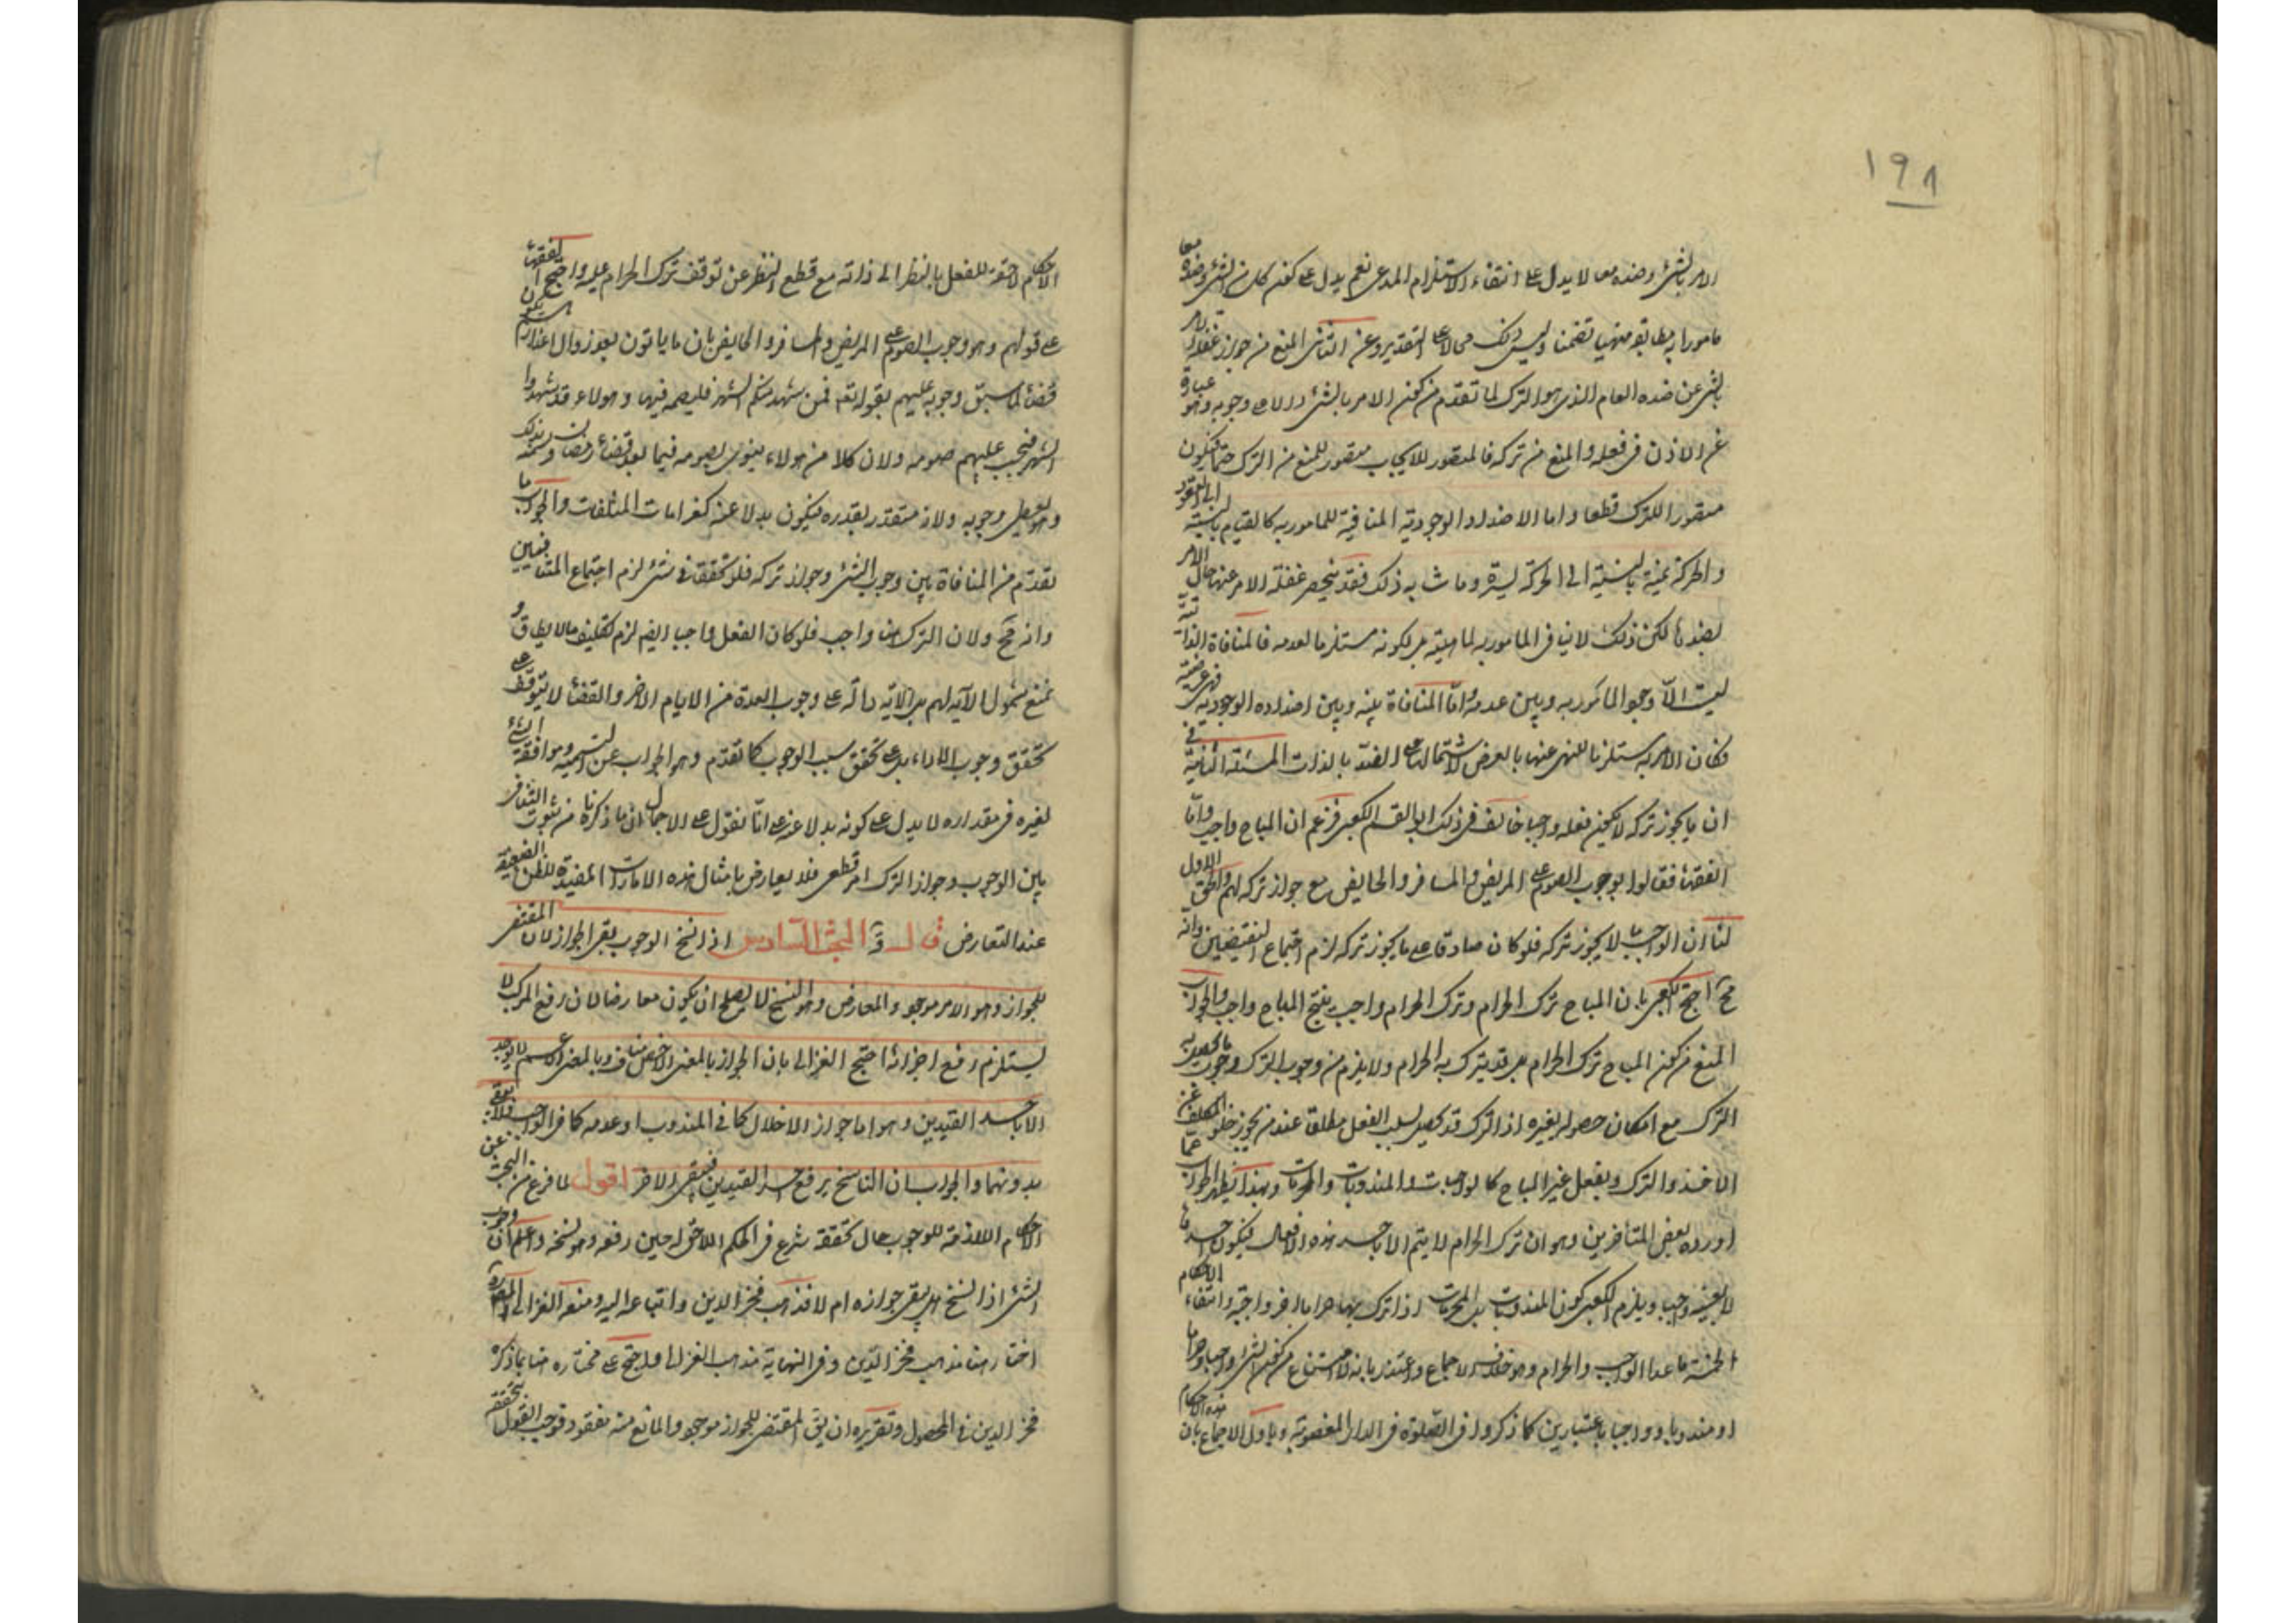 ١٩١
الامر بالشئ وضده معا لا يدل على انتفاء الاستلزام المدعى نعم يدل على كون كل من الشئ وضده معا
مامورا به مطابقة منهيا تضمنا وليس ذلك محالا على التقدير وعن الثانى المنع من جواز غفلة الامر
بالشئ عن ضده العام الذى هو الترك لما تقدم من كون الامر بالشئ دالا على وجوبه وهو عبارة
عن الاذن فى فعله والمنع من تركه فالمتصور للايجاب متصور للمنع من الترك حتما فيكون
متصورا للترك قطعا واما الاضداد الوجودية المنافية للمامور به كالقيام بالنسبة الى القعود
والحركة يمنة بالنسبة الى الحركة يسرة وما شابه ذلك فقد يتحصر غفلة الامر عنها حال الامر
لضدها لكن ذلك لا ينافى المامور به لماهيته بل لكونه مستلزما لعدمه فالمنافاة الذاتية
ليست الا وجود المامور به وبين عدمه واما المنافاة بينه وبين اضداده الوجودية فهى عرضية
فكان الامر به مستلزما للنهى عنها بالعرض لاشتمالها على الضد بالذات المسئلة الثانية فى
ان ما يجوز تركه لا يكون فعله واجبا خالف فى ذلك ابو القسم الكعبى فزعم ان المباح واجب واما
الفقهاء فقالوا بوجوب الصوم على المريض والمسافر والحايض مع جواز تركه لهم والحق الاول
لنا ان الواجب ما لا يجوز تركه فلو كان صادقا على ما يجوز تركه لزم اجتماع النقيضين وانه
مح احتج الكعبى بان المباح ترك الحرام وترك الحرام واجب ينتج المباح واجب والجواب
المنع من كون المباح ترك الحرام بل قد يترك به الحرام ولا يلزم من وجوب الترك وجوب ما يحصل به
الترك مع امكان حصوله بغيره اذ الترك قد يحصل بسلب الفعل مطلقا عند من يجوز خلو المكلف عن
الاخذ والترك وبفعل غير المباح كالواجبات والمندوبات والمحرمات وبهذا يظهر الجواب عما
اورده بعض المتأخرين وهو ان ترك الحرام لا يتم الا باحد هذه الافعال فيكون احدها
لا بعينه واجب ويلزم الكعبى كون المندوبات بل المحرمات اذا ترك بها حراما اخر واجبة وانتفاء الاحكام
الخمسة ما عدا الواجب والحرام وهو خلاف الاجماع واعتذر بانه لا امتناع من كون الشئ واجبا وحراما
او مندوبا وواجبا باعتبارين كما ذكروا فى الصلوة فى الدار المغصوبة وياول الاجماع بان هذه الاحكام
الاحكام لاحقة للفعل بالنظر الى ذاته مع قطع النظر عن توقف ترك الحرام عليه واحتج الفقهاء
على قولهم وهو وجوب الصوم على المريض والمسافر والحايض بان ما ياتون بعد زوال اعذارهم يكون
قضاء لما سبق وجوبه عليهم بقوله تعم فمن شهد منكم الشهر فليصمه فيها وهولاء قد شهدوا
الشهر فيجب عليهم صومه ولان كلا من هولاء ينوى بصومه فيما بعد قضاء رمضان وسمته بذلك
وهو يعطى وجوبه ولانه متقدر بقدره فيكون بدلا عنه كغرامات المتلفات والجواب ما
تقدم من المنافاة بين وجوب الشئ وجواز تركه فلو تحققت فى شئ لزم اجتماع المتنافيين
وانه مح ولان الترك هنا واجب فلو كان الفعل واجبا ايضم لزم تكليف ما لا يطاق و
نمنع شمول الآية لهم بل الآية دالة على وجوب العدة من الايام الاخر والقضاء لا يتوقف على
تحقق وجوب الاداء بل على تحقق سبب الوجوب كما تقدم وهو الجواب عن التسمية وموافقة الشئ
لغيره فى مقداره لا يدل على كونه بدلا عنه على انا نقول على الاجمال ان ما ذكرناه من ثبوت التنافر
بين الوجوب وجواز الترك امر قطعى فلا يعارض بامثال هذه الامارات المفيدة للظن الضعيف
عند التعارض قال البحث السادس اذا نسخ الوجوب بقى الجواز لان المقتضى
للجواز وهو الامر موجود والمعارض وهو النسخ لا يصلح ان يكون معارضا لان رفع المركب لا
يستلزم رفع اجزائه احتج الغزالى بان الجواز بالمعنى الاخص مناف وبالمعنى الاعم لا يوجد
الا باحد القيدين وهو اما جواز الاخلال كما فى المندوب او عدمه كما فى الواجب فلا يبقى
بدونهما والجواب ان الناسخ يرفع احد القيدين فيبقى الاخر اقول لما فرغ من البحث عن
الاحكام اللازمة للوجوب حال تحققه شرع فى الحكم اللاحق له حين رفعه وهو نسخه واعلم ان وجوب
الشئ اذا نسخ هل يبقى جوازه ام لا فذهب فخر الدين واتباعه اليه ومنعه الغزالى والمصنف
اختار هنا مذهب فخر الدين وفى النهاية مذهب الغزالى واحتج على مختاره هنا بما ذكره
فخر الدين فى المحصول وتقريره ان يق المقتضى للجواز موجود والمانع منه مفقود فوجب القول بتحققه